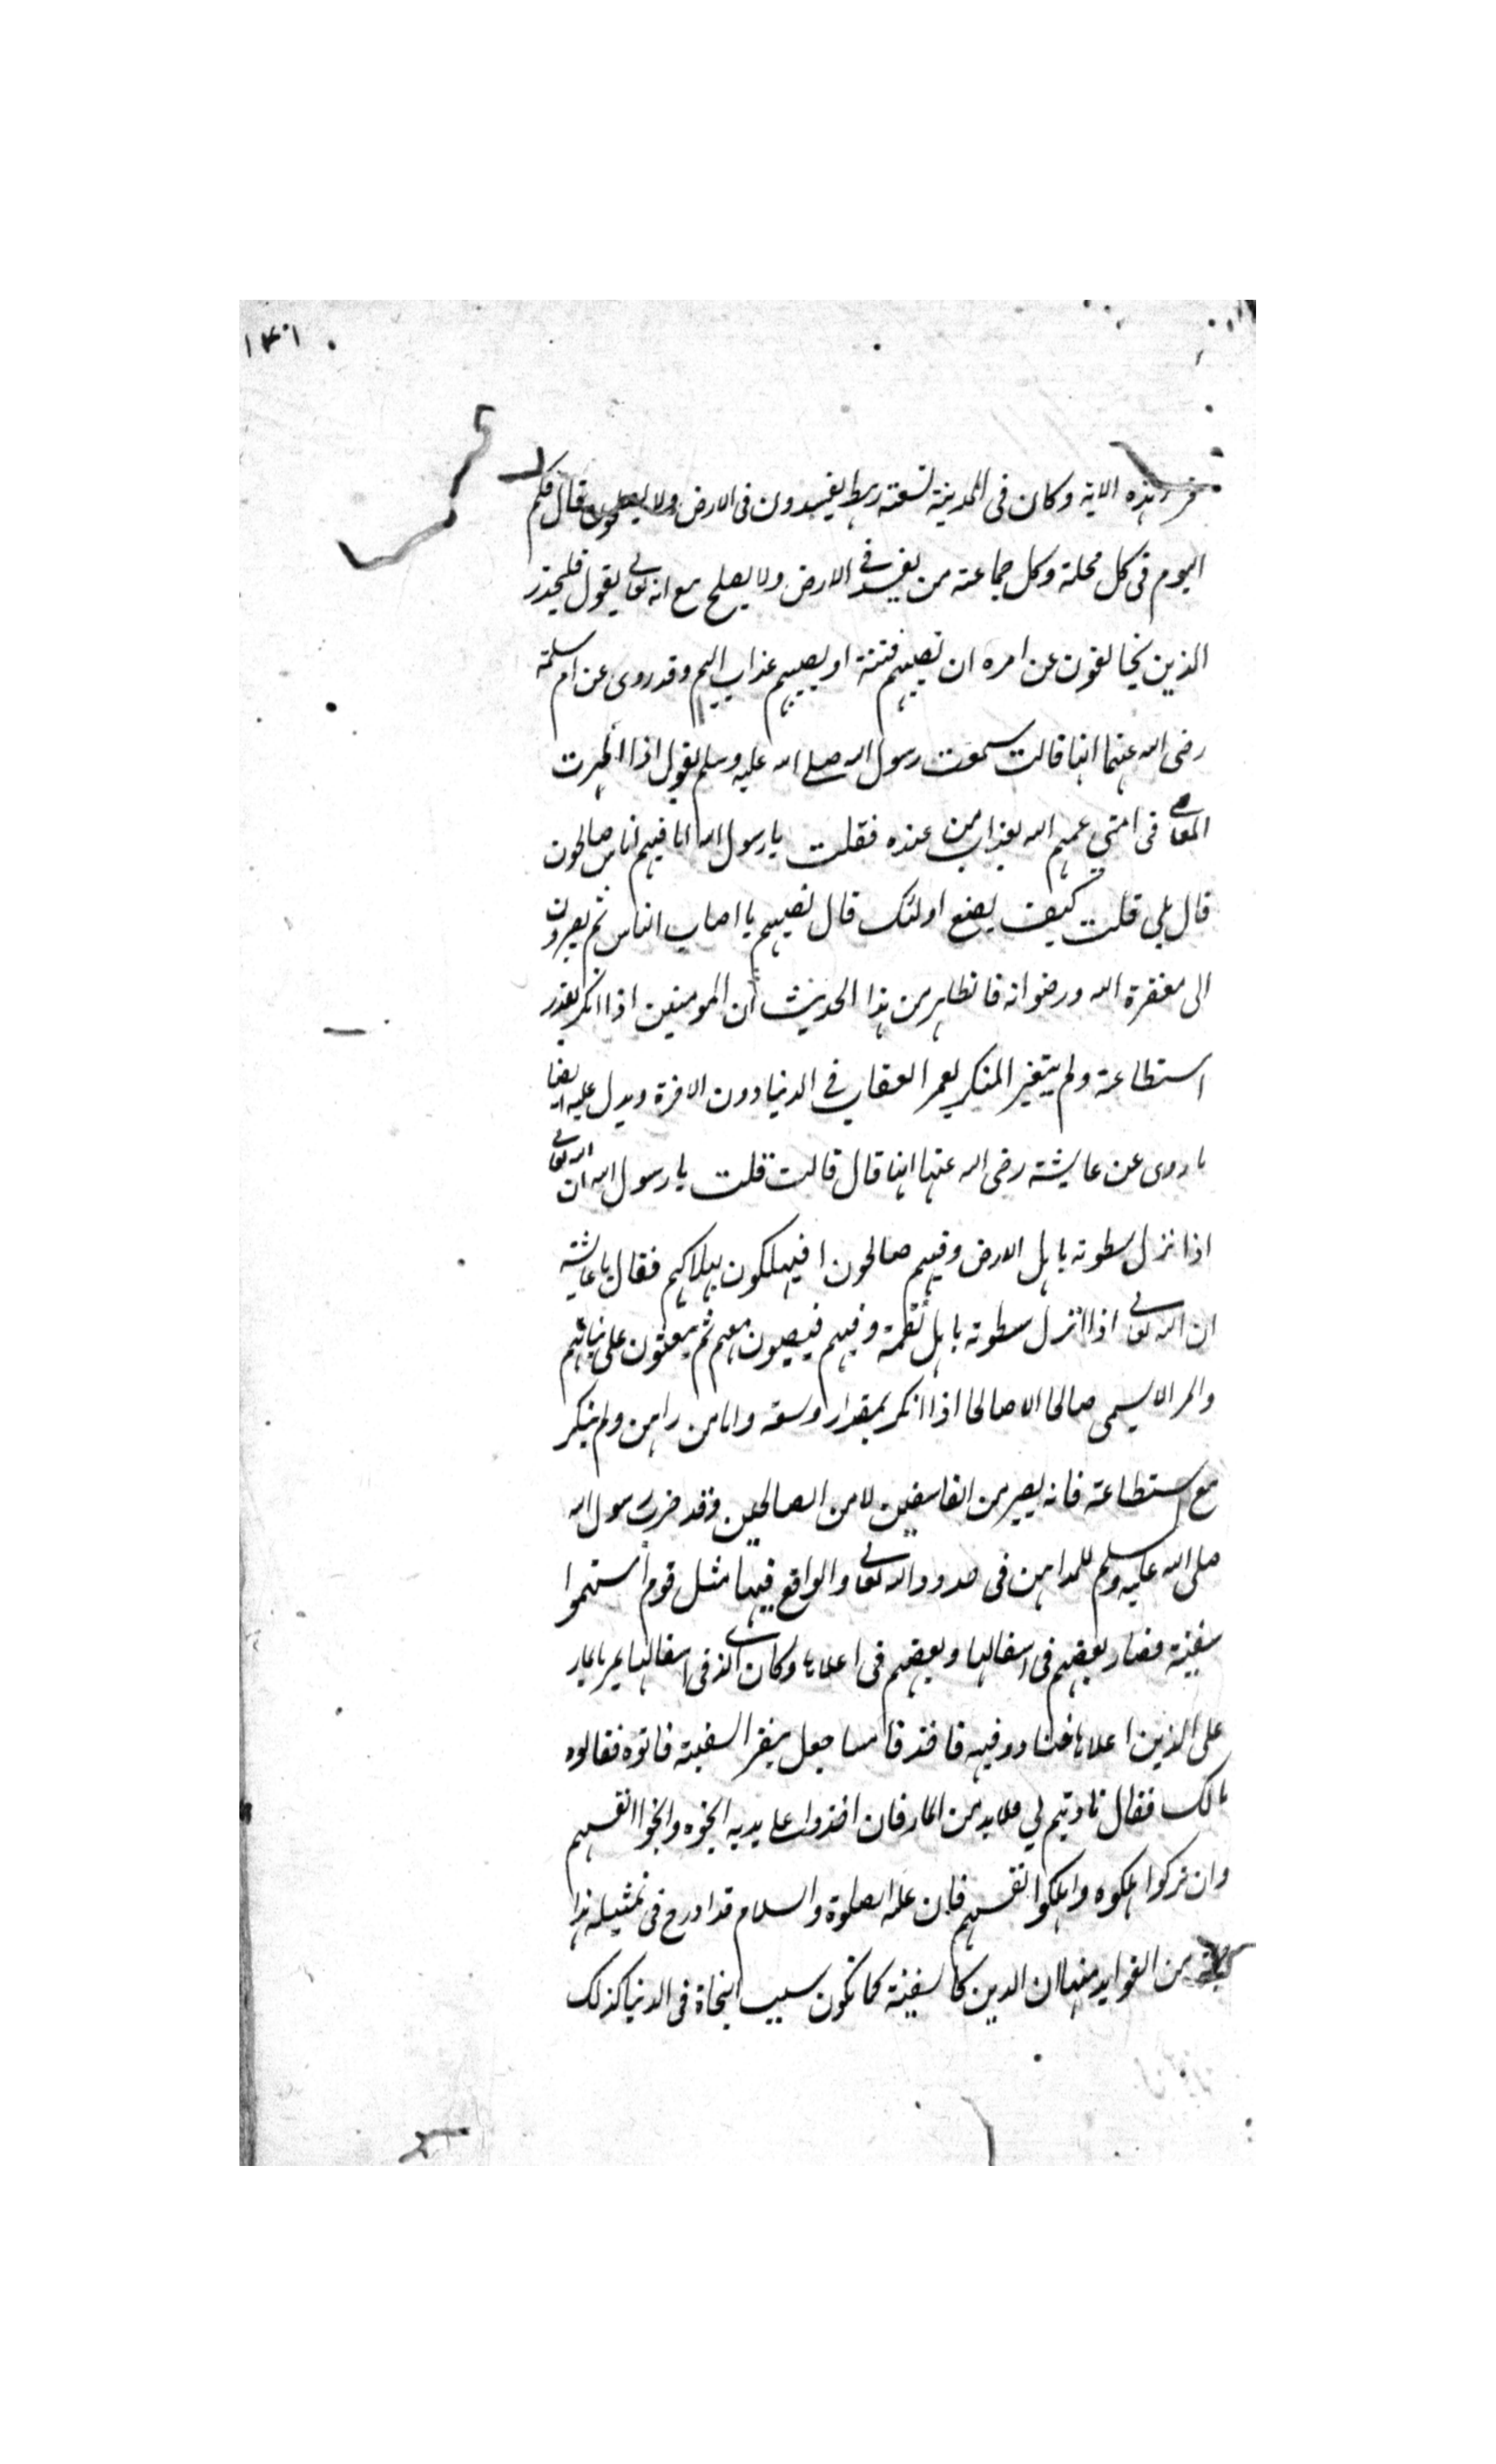 ١٤٠١
قرء هذه الاية وكان فى المدينة تسعة رهط يفسدون فى الارض ولا يصلحون فقال فكم
اليوم فى كل محلة وكل جماعة من يفسد فى الارض ولا يصلح مع انه تعالى يقول فليحذر
الذين يخالفون عن امره ان تصيبهم فتنة او يصيبهم عذاب اليم وقد روى عن ام سلمة
رضى الله عنها انها قالت سمعت رسول الله صلى الله عليه وسلم يقول اذا اظهرت
المعاصى فى امتي عمهم الله بعذاب من عنده فقلت يا رسول الله اما فيهم اناس صالحون
قال بلى قلت كيف يصنع اولئك قال تصيبهم ما اصاب الناس ثم يصيرون
الى مغفرة الله ورضوانه فالظاهر من هذا الحديث أن المومنين اذا انكر بقدر
استطاعة ولم يتغير المنكر يعم العقاب فى الدنيا دون الاخرة ويدل عليه ايضا
ما روى عن عايشة رضى الله عنها انها قال قالت قلت يا رسول الله ان الله تعالى
اذا نزل سطوته باهل الارض وفيهم صالحون افيهلكون بهلاكهم فقال يا عائشة
ان الله تعالى اذا انزل سطوته باهل نقمة وفيهم فيصيبون معهم ثم يبعثون على نياتهم
والمر الا يسمى صالحا الا صالحا اذا انكر بمقدار وسعه واما من راهن ولم ينكر
مع استطاعة فانه يصير من الفاسقين لا من الصالحين وقد ضرب رسول الله
صلى الله عليه وسلم للمداهن فى حدود الله تعالى والواقع فيها مثل قوم أستهموا
سفينة فصار بعضهم فى اسفالها وبعضهم فى اعلاها وكان الذى فى اسفالها يمر بالماء
على الذين اعلاها فتادو فيه فاخذ فاسا جعل ينقر السفينة فاتوه فقالوه
مالك فقال تاديتم لي ولا بد من الماء فان اخذوا على يديه انجوه وانجوا انفسهم
وان تركوا اهلكوه واهلكوا انفسهم فان عليه الصلوة والسلام قد ادرج فى تمثيله هذا
من الفوايد منها ان الدين كالسفينة كما تكون سبب النجاة فى الدنيا كذلك